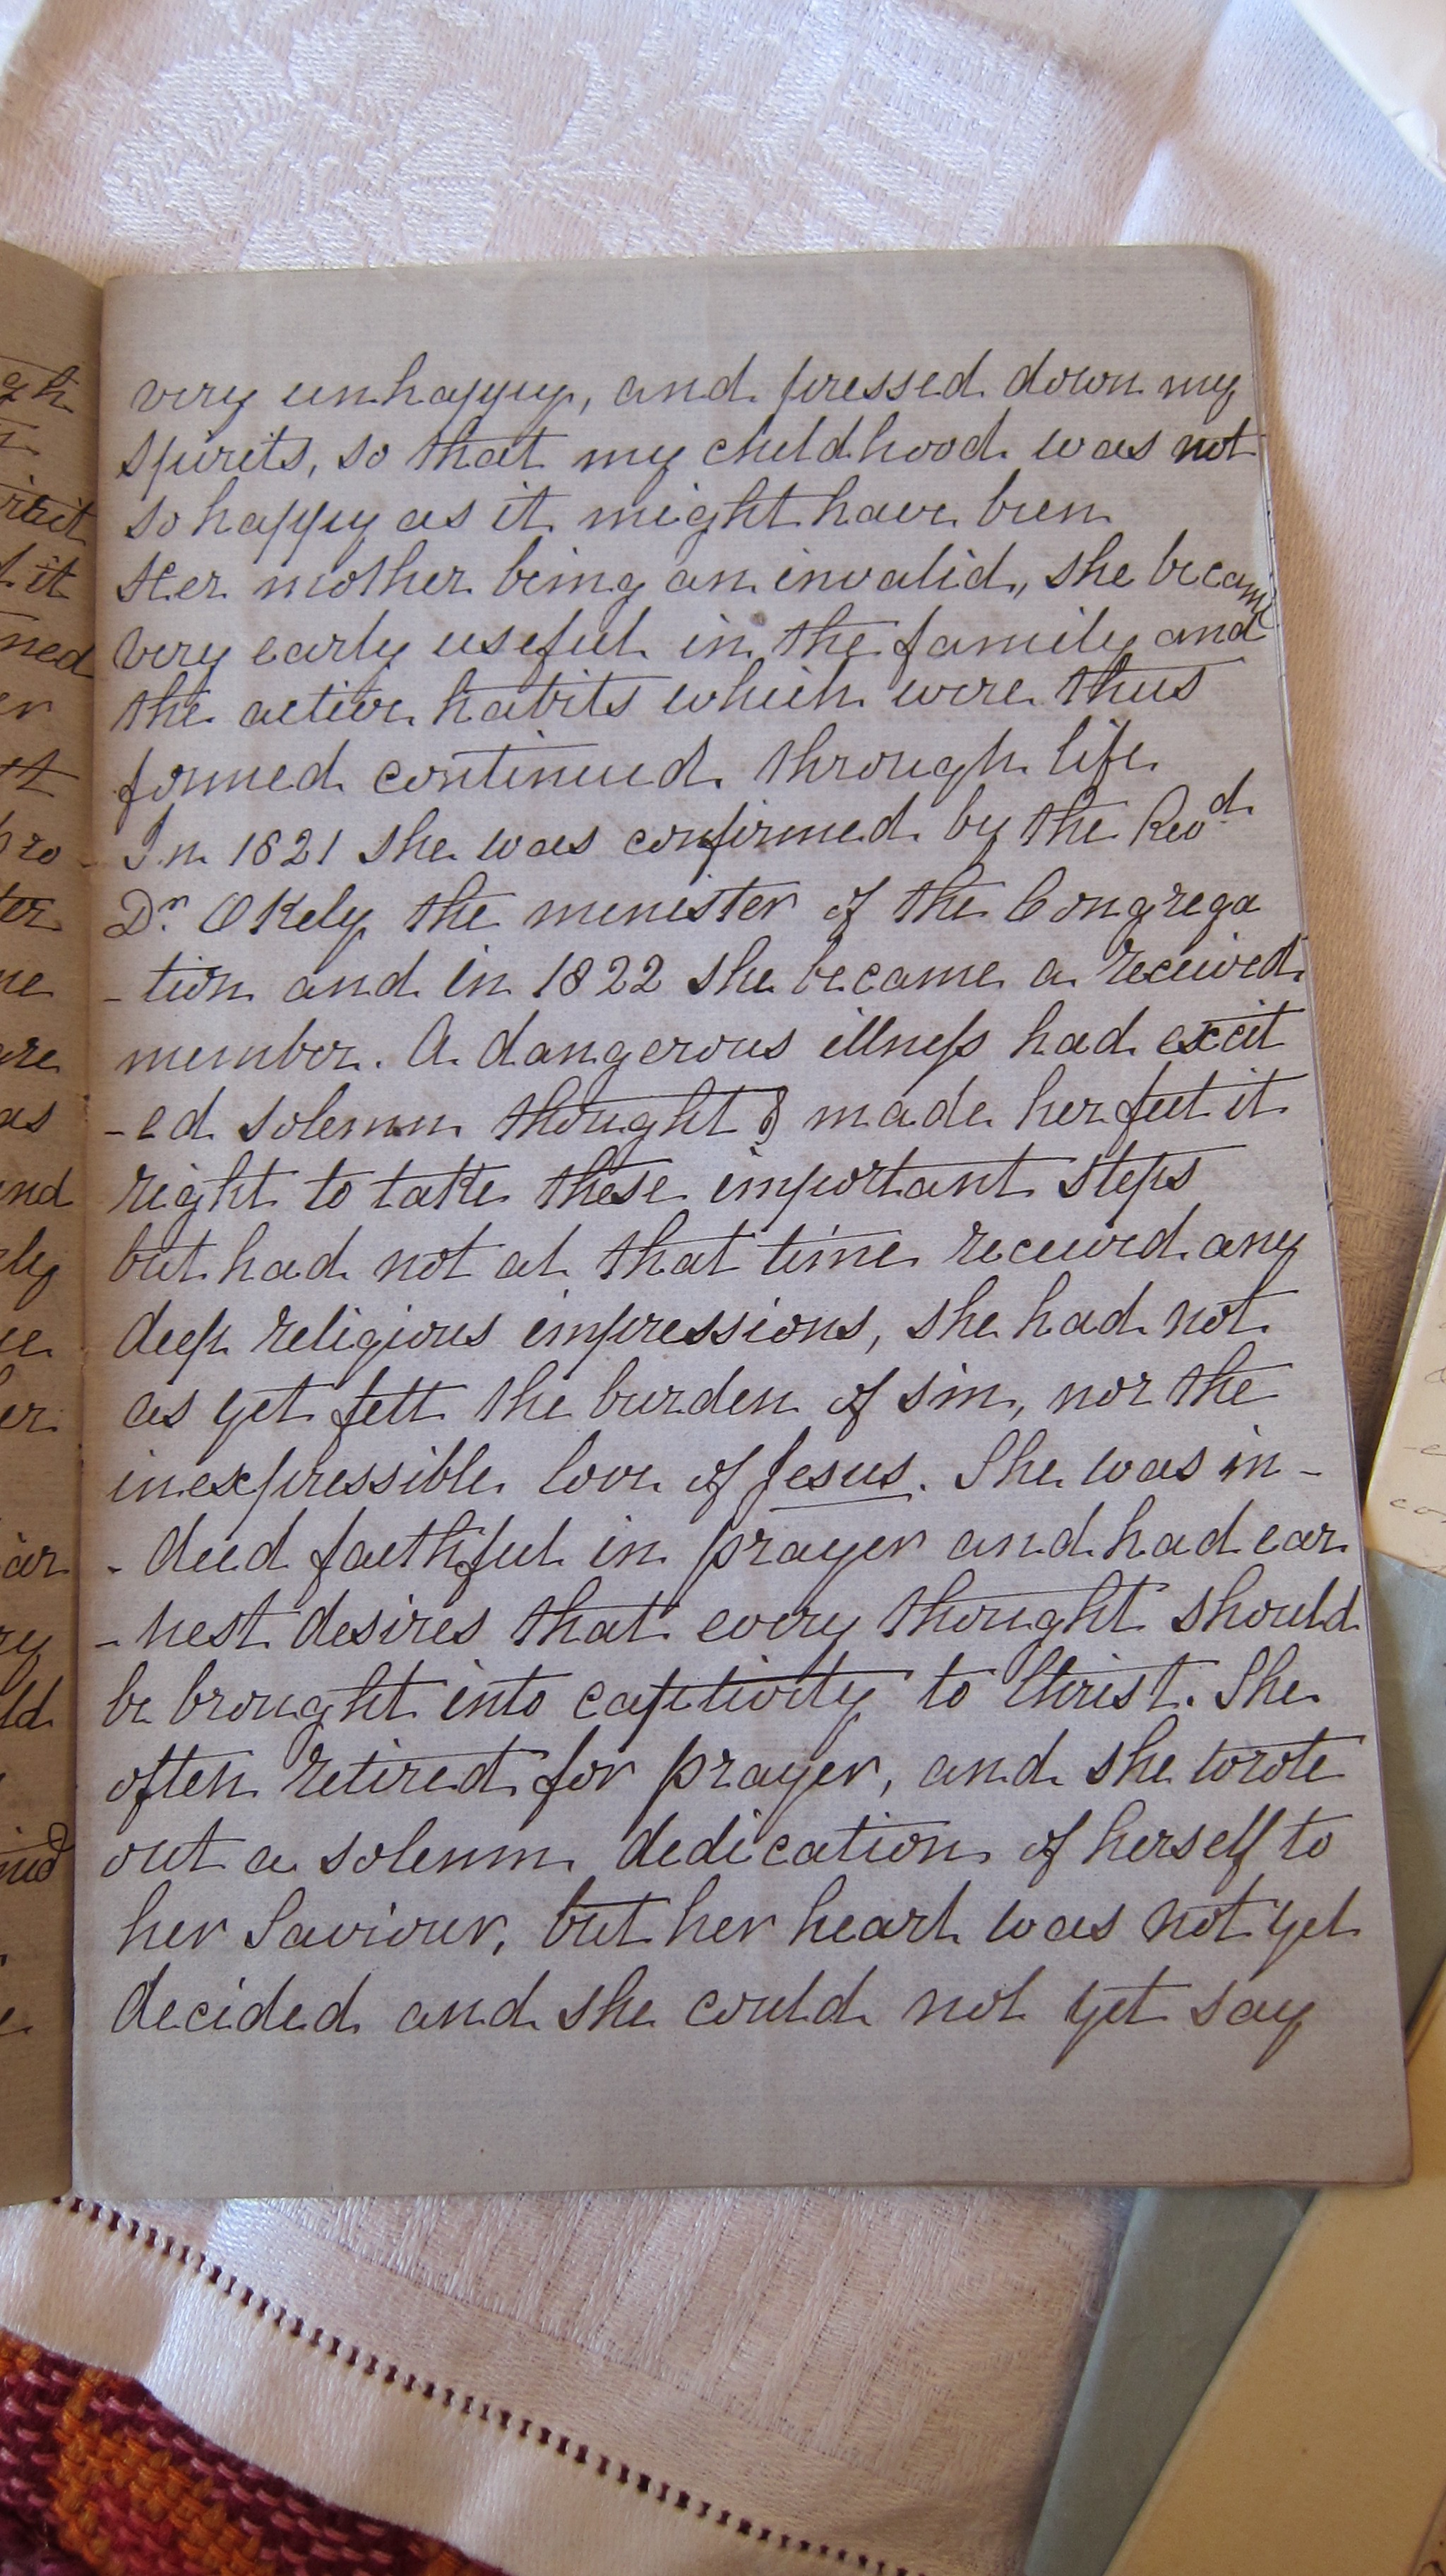 very unhappy, and pressed down my
spirits, so that my childhood was not
so happy as it might have been
Her mother being an invalid, she became
very early useful in the family and
the active habits which were thus
formed continued through life
In 1821 she was confirmed by the Revd
Dr. Okely the minister of the Congrega
-tion and in 1822 she became a received
member. A dangerous illness had excit
-ed solemn thought & made her feel it
right to take these important steps
but had not at that time received any
deep religious impressions, she had not
as yet felt the burden of sin, nor the
inexpressible love of Jesus. She was in-
-deed faithful in prayer and had ear
-nest desires that every thought should
be brought into captivity to Christ. She
often retired for prayer, and she wrote
out a solemn dedication of herself to
her Saviour, but her heart was not yet
decided and she could not yet say